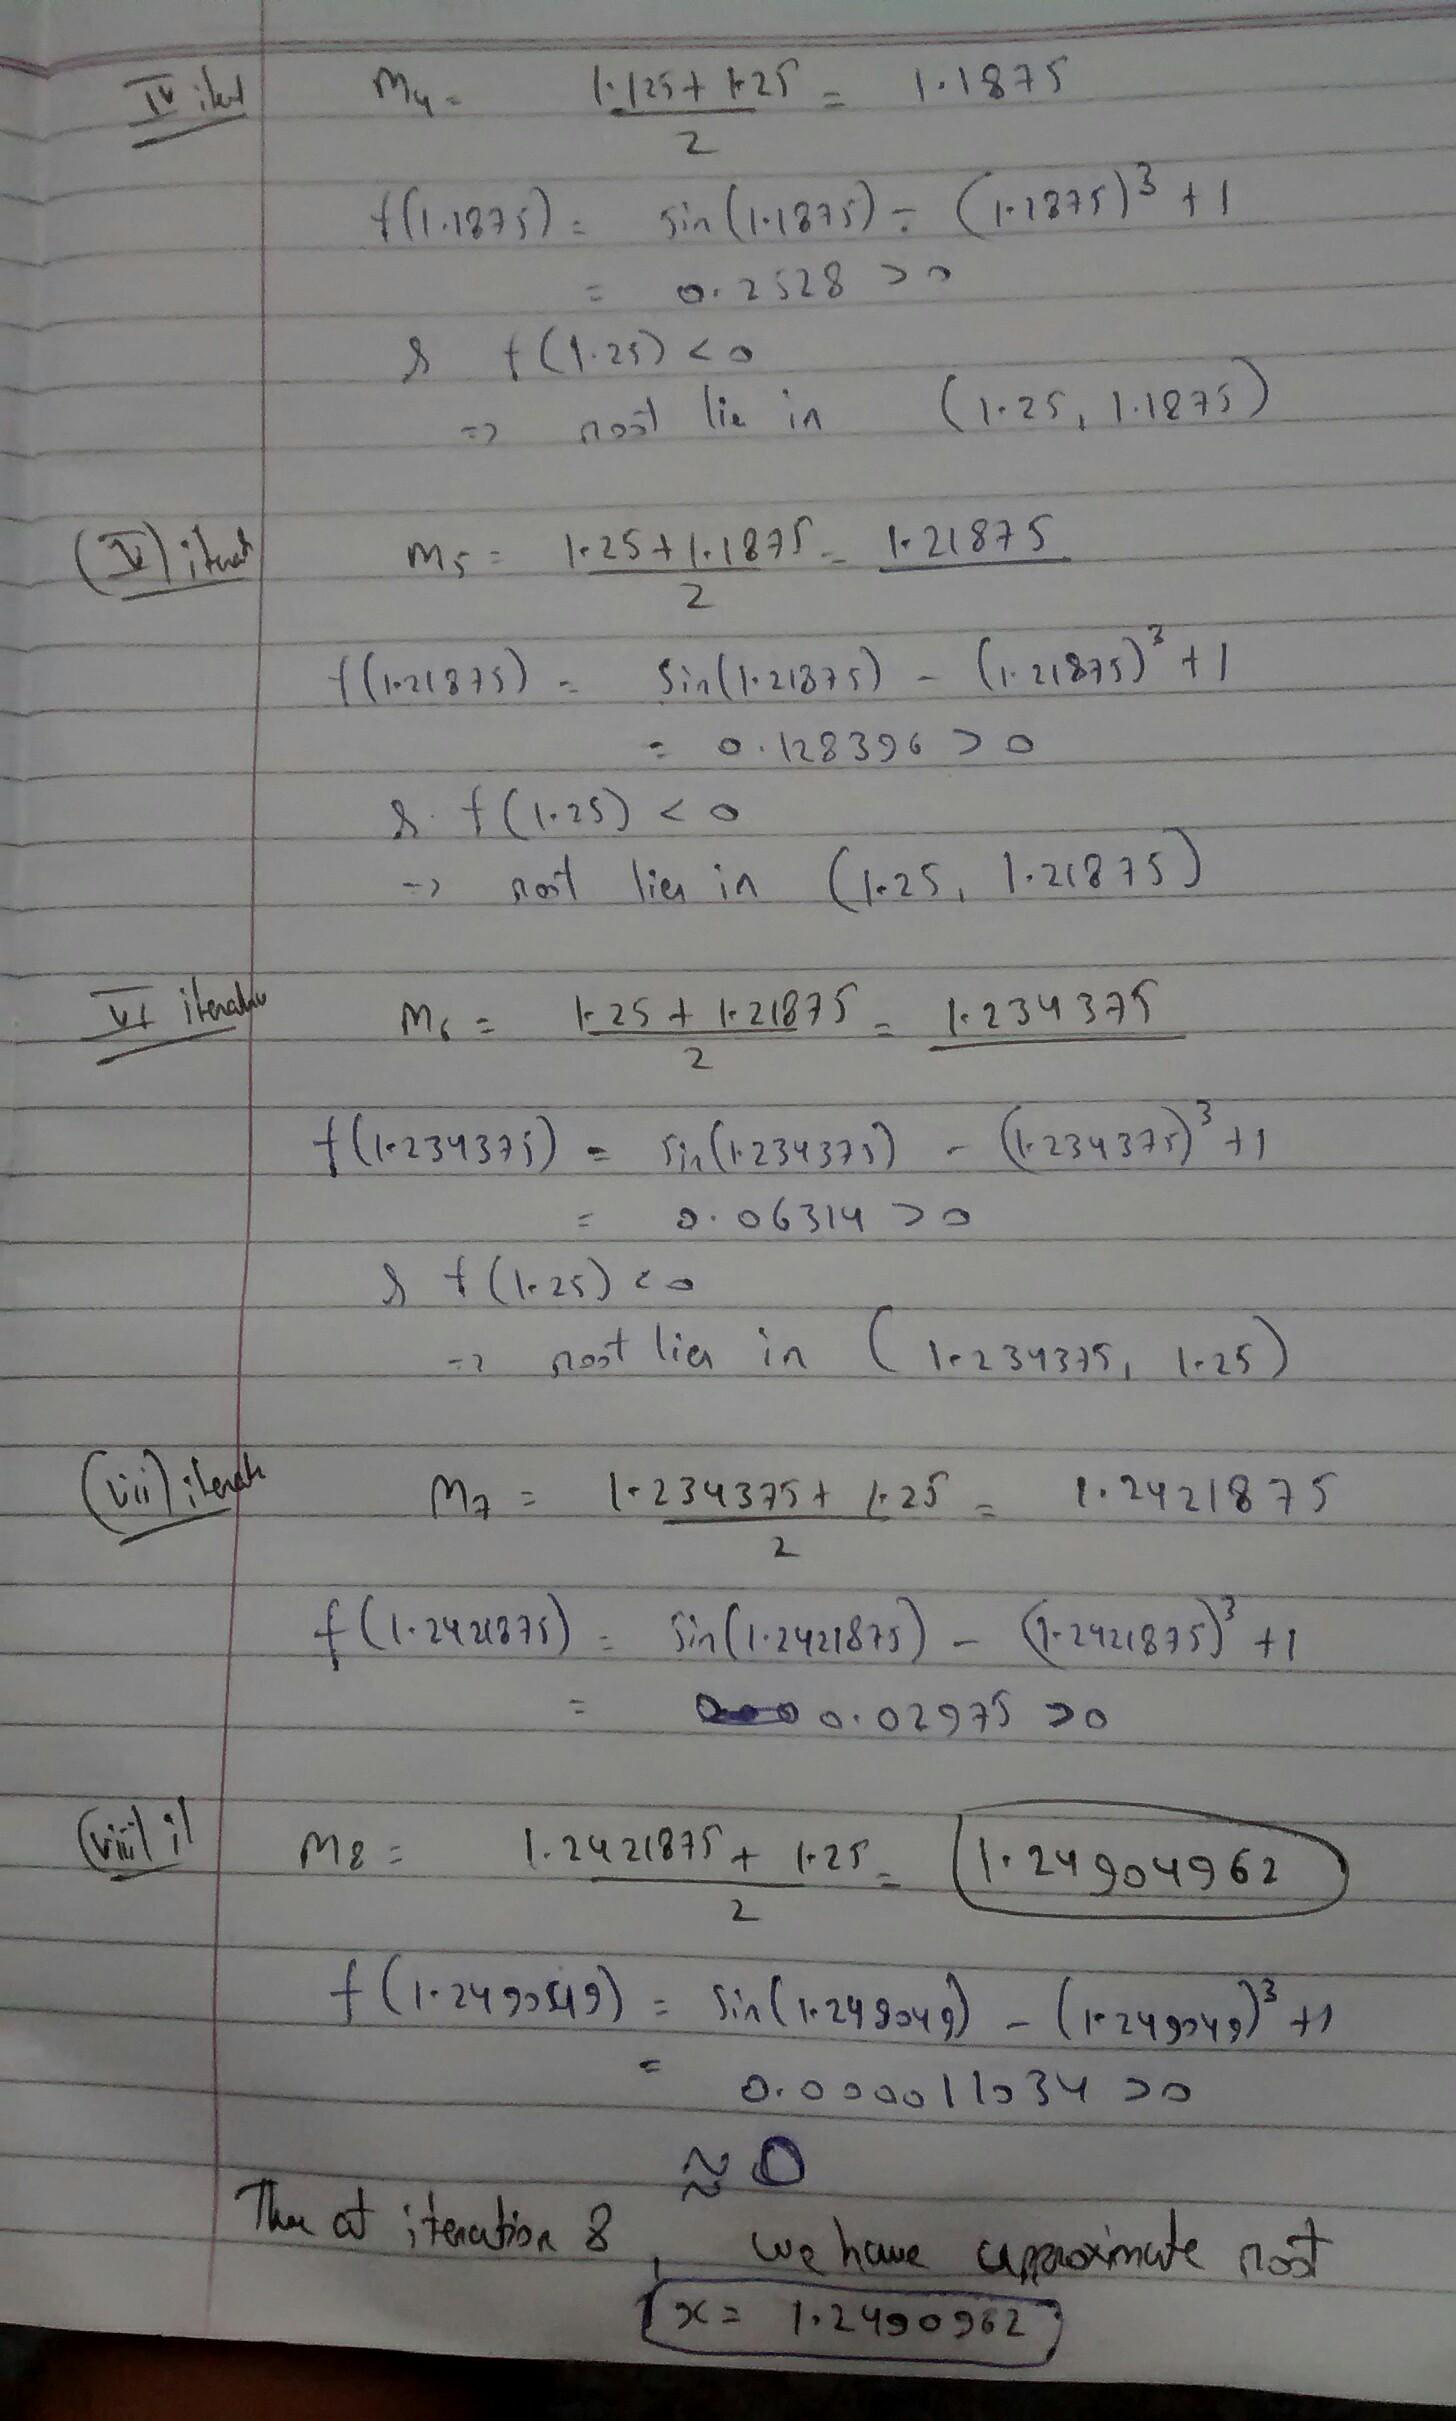 IV iter m₄ = (1.125 + 1.25)/2 = 1.1875
f(1.1875) = sin(1.1875) - (1.1875)³ + 1
= 0.2528 > 0
& f(1.25) < 0
=> root lie in (1.25, 1.1875)
(V) iterat m₅ = (1.25 + 1.1875)/2 = 1.21875
f(1.21875) = Sin(1.21875) - (1.21875)³ + 1
= 0.128396 > 0
& f(1.25) < 0
=> root lies in (1.25, 1.21875)
VI iteration m₆ = (1.25 + 1.21875)/2 = 1.234375
f(1.234375) = Sin(1.234375) - (1.234375)³ + 1
= 0.06314 > 0
& f(1.25) < 0
=> root lies in (1.234375, 1.25)
(vii) iterate m₇ = (1.234375 + 1.25)/2 = 1.2421875
f(1.2421875) = Sin(1.2421875) - (1.2421875)³ + 1
= 0.02975 > 0
(viii) it m₈ = (1.2421875 + 1.25)/2 = 1.24904962
f(1.249049) = Sin(1.249049) - (1.249049)³ + 1
= 0.000011034 > 0
≈ 0
Thus at iteration 8, we have approximate root
x = 1.2490962